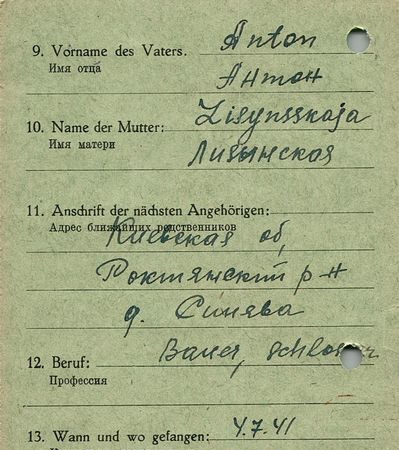 9. Vorname des Vaters. Anton
Имя отца
Антон
10. Name der Mutter: Lisynsskaja
Имя матери
Лизынская
11. Anschrift der nächsten Angehörigen:
Адрес ближайших родственников
Киевская об,
Рокитянский р-н
д. Синява
12. Beruf: Bauer, Schlosser
Профессия
13. Wann und wo gefangen: 4.7.41